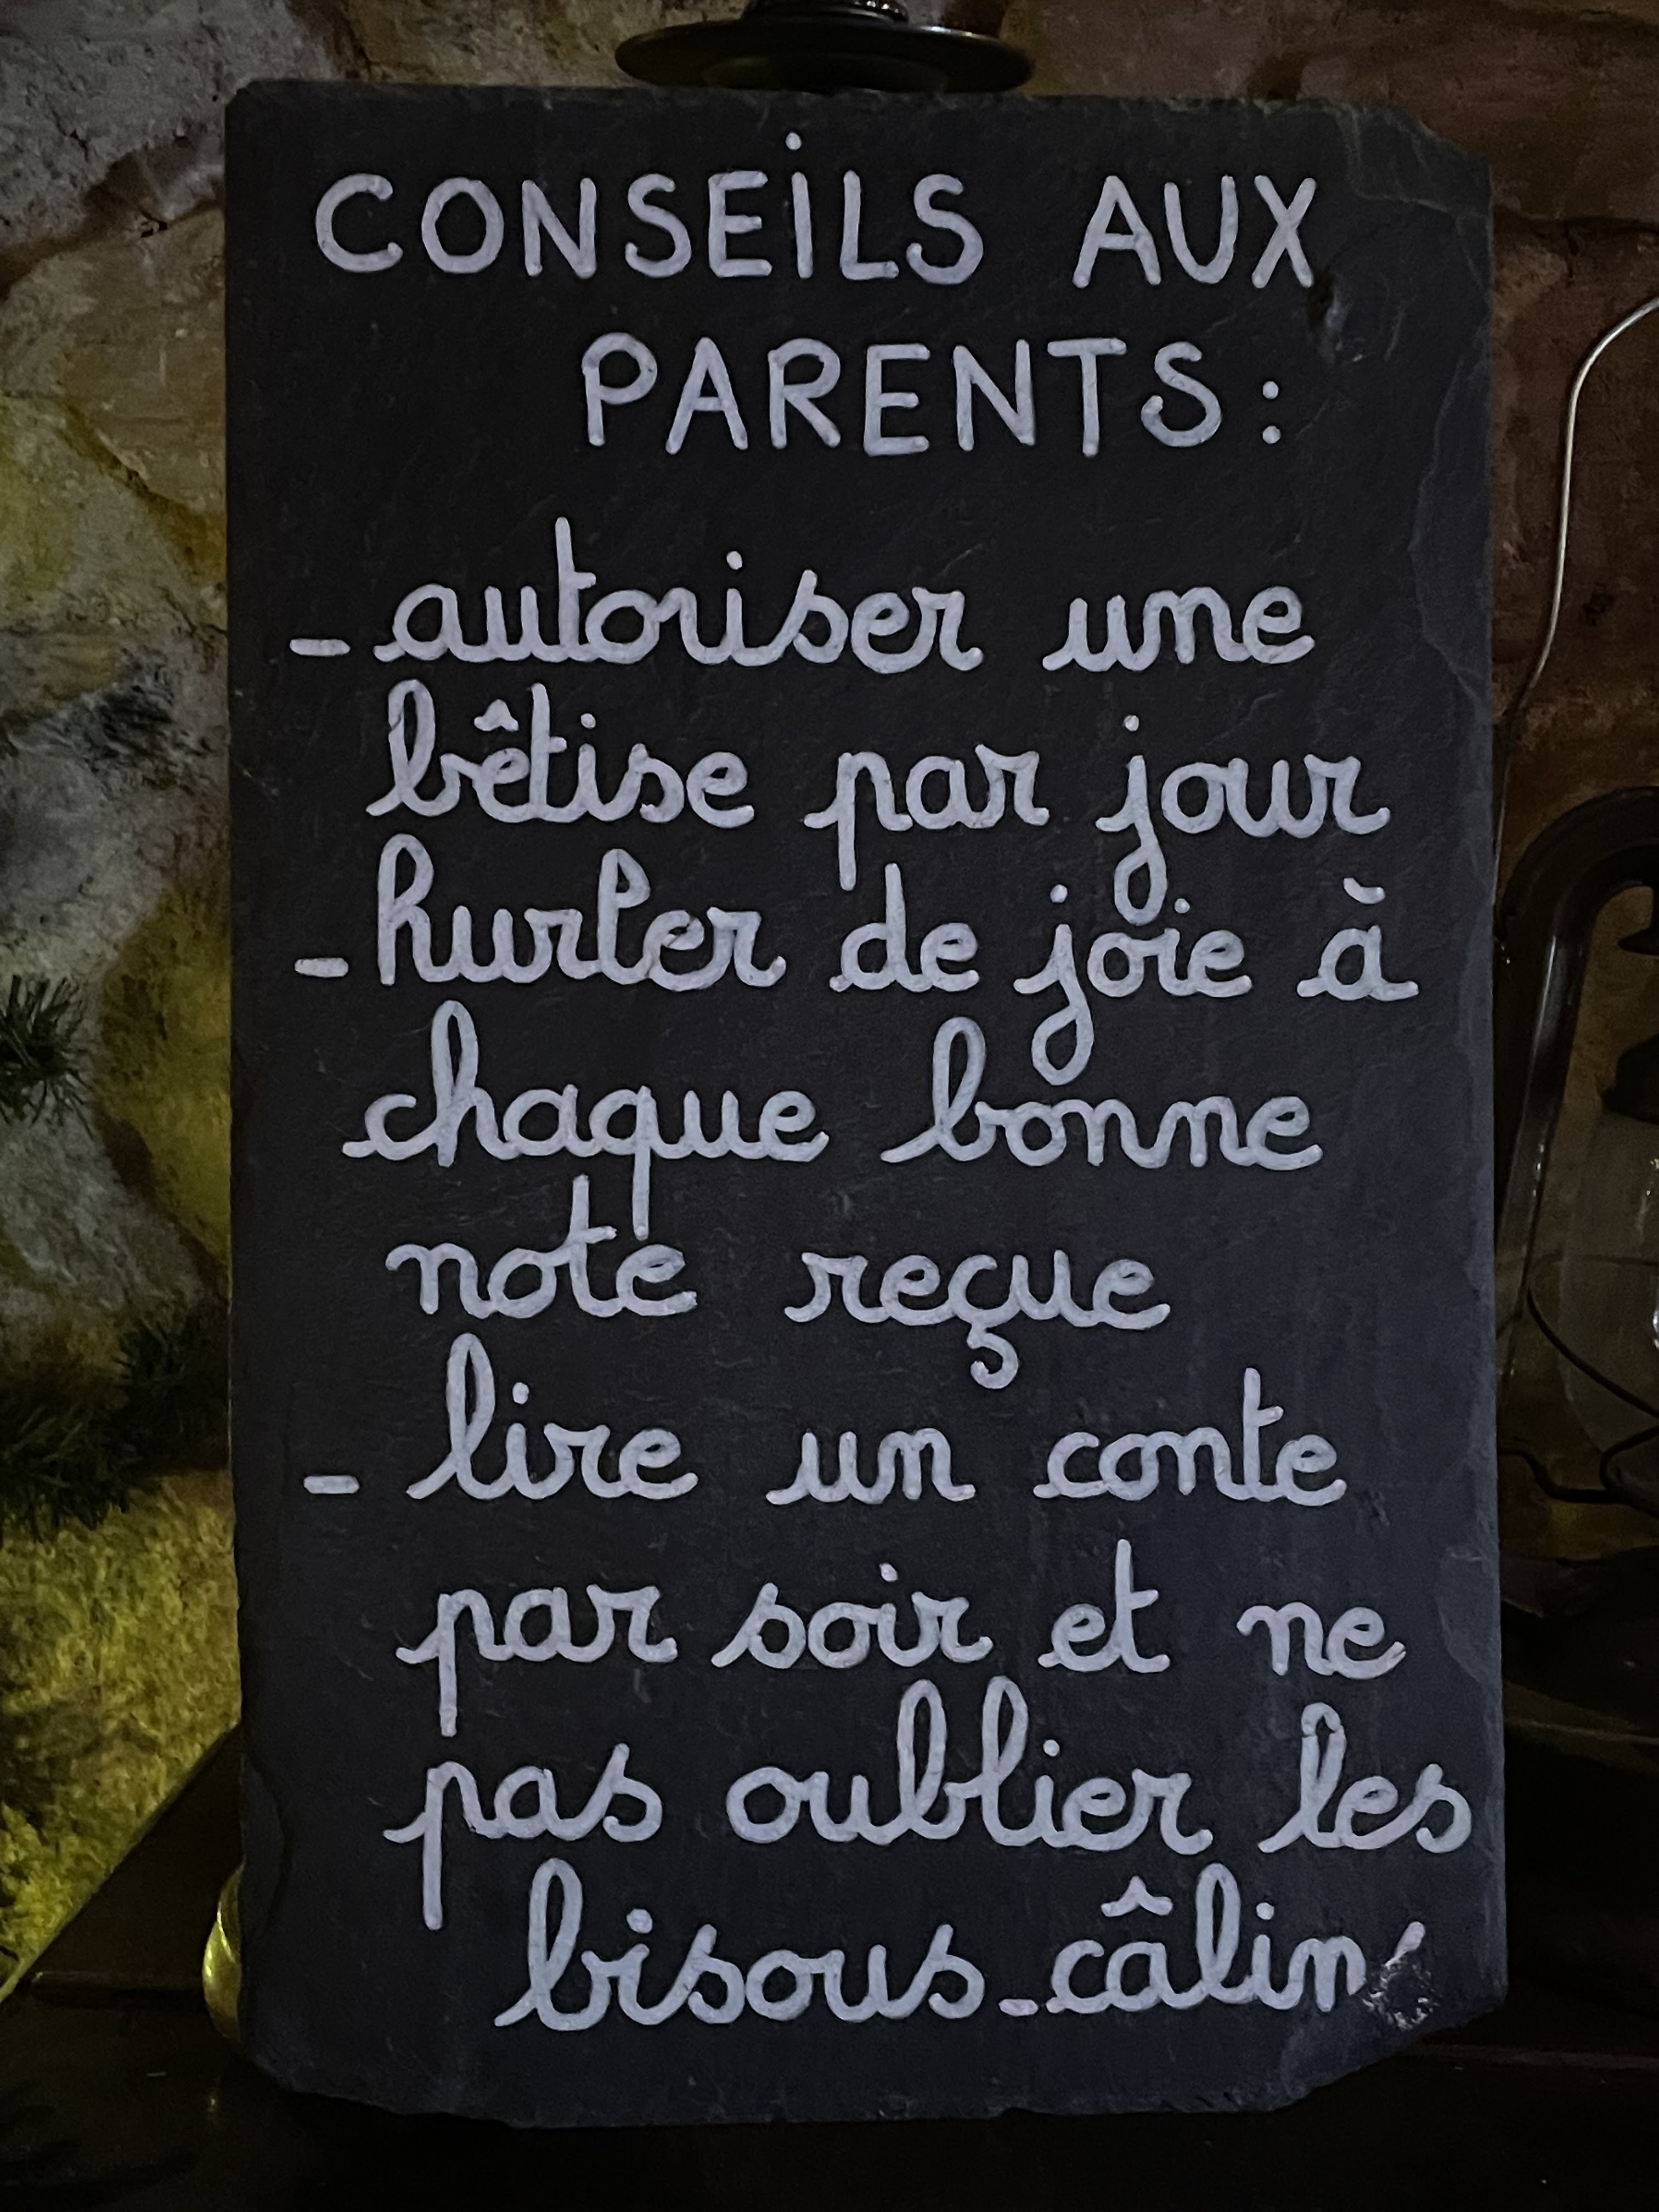 CONSEILS AUX
PARENTS :
- autoriser une
bêtise par jour
- hurler de joie à
chaque bonne
note reçue
- lire un conte
par soir et ne
pas oublier les
bisous-câlins